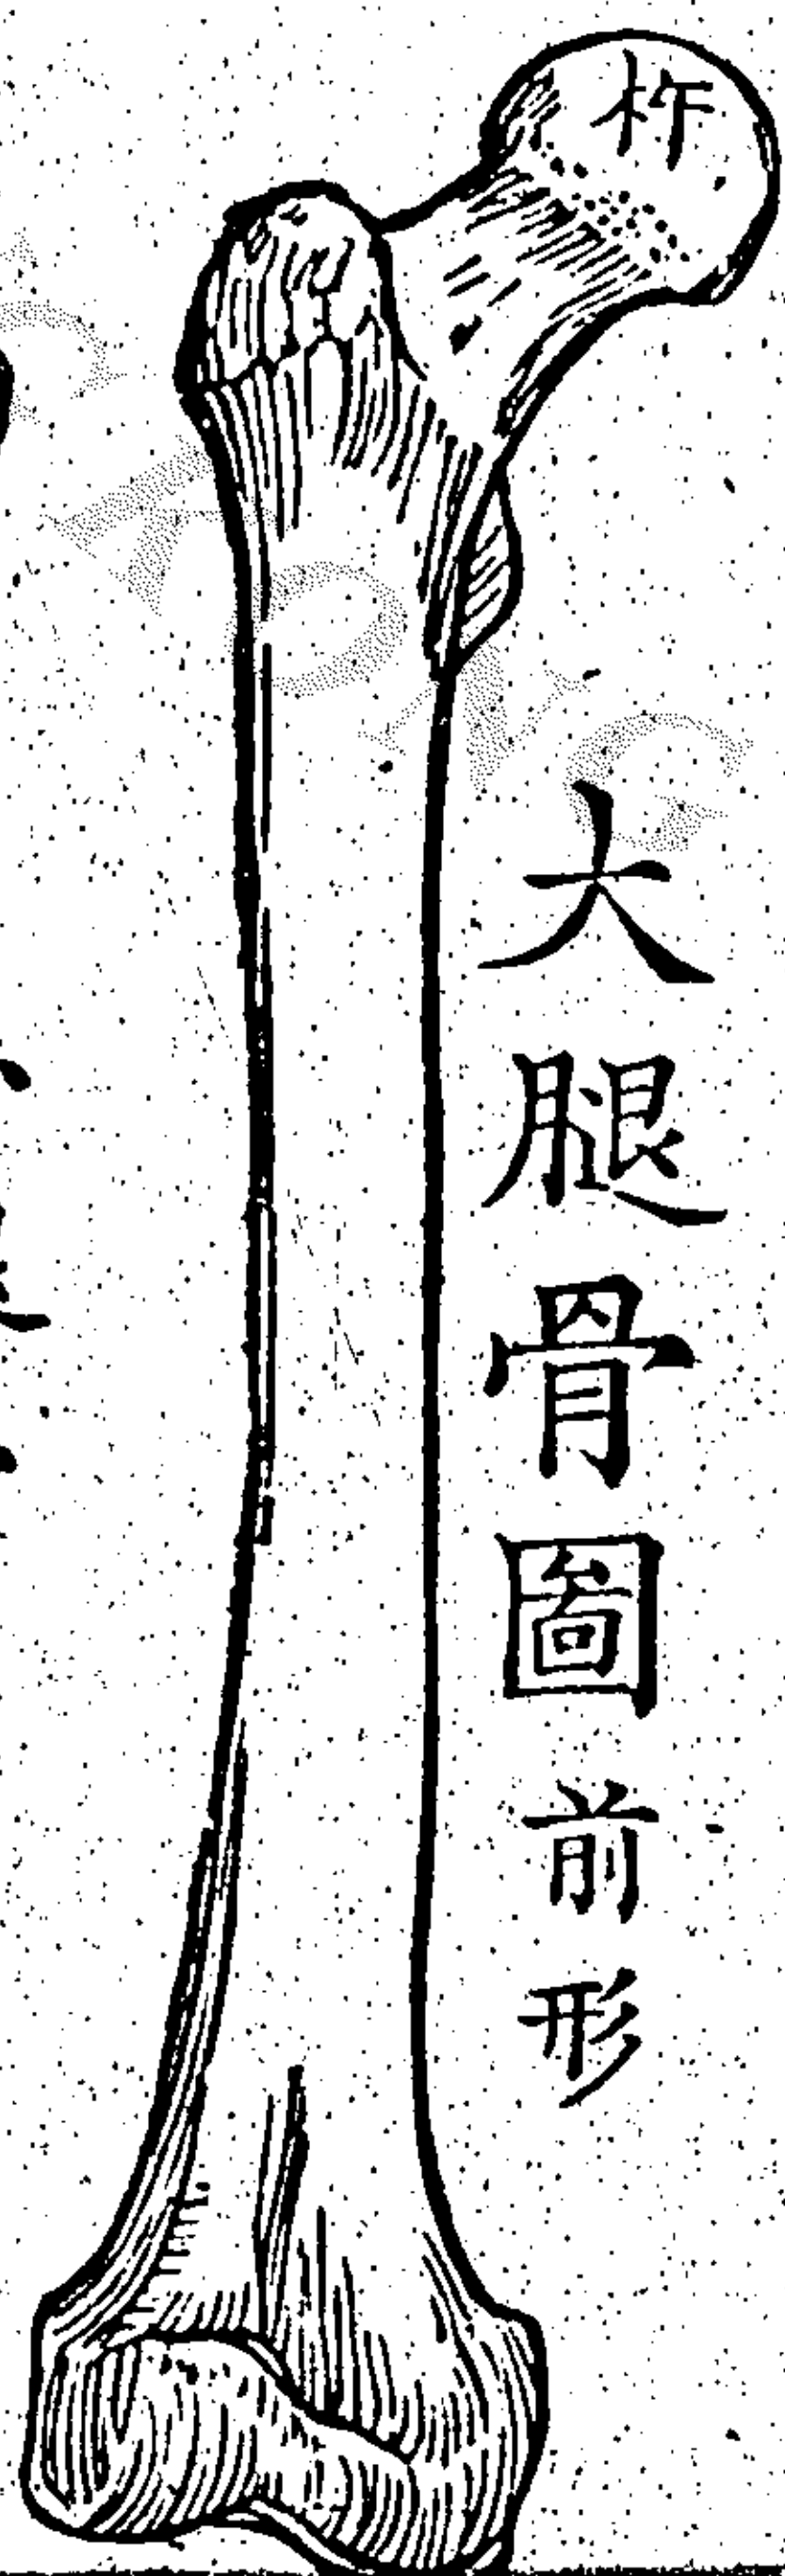 杵
大腿骨圖前形